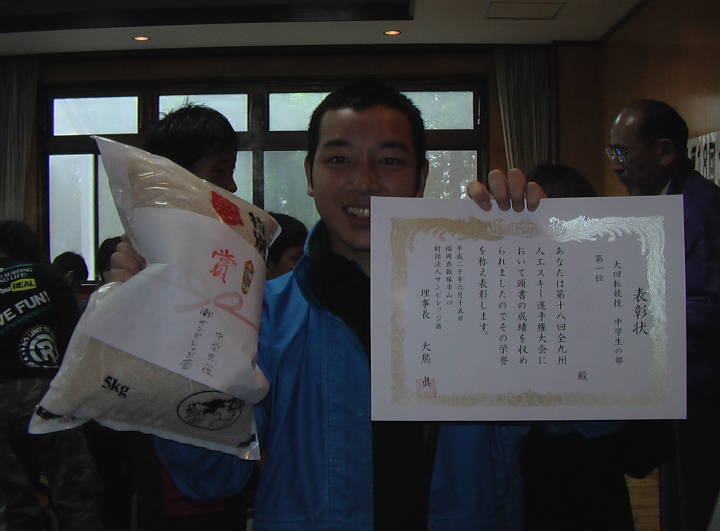 表彰状
大回転競技　中学生の部
第一位
殿
あなたは第十八回全九州
人工スキー選手権大会に
おいて頭書の成績を収め
られましたのでその栄誉
を称え表彰します。
平成二十年六月十五日
福岡県飯塚市山口
財団法人サンビレッジ茜
理事長　大熊　眞
特別
賞
中学生一位
(財)サンビレッジ茜
5kg
REAL
FUN!